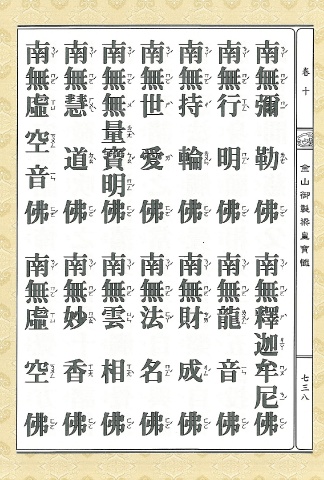 卷十
金山御製梁皇寶懺
七三八
南無彌勒佛
南無釋迦牟尼佛
南無行明佛
南無龍音佛
南無持輪佛
南無財成佛
南無世愛佛
南無法名佛
南無無量寶明佛
南無雲相佛
南無慧道佛
南無妙香佛
南無虛空音佛
南無虛空佛